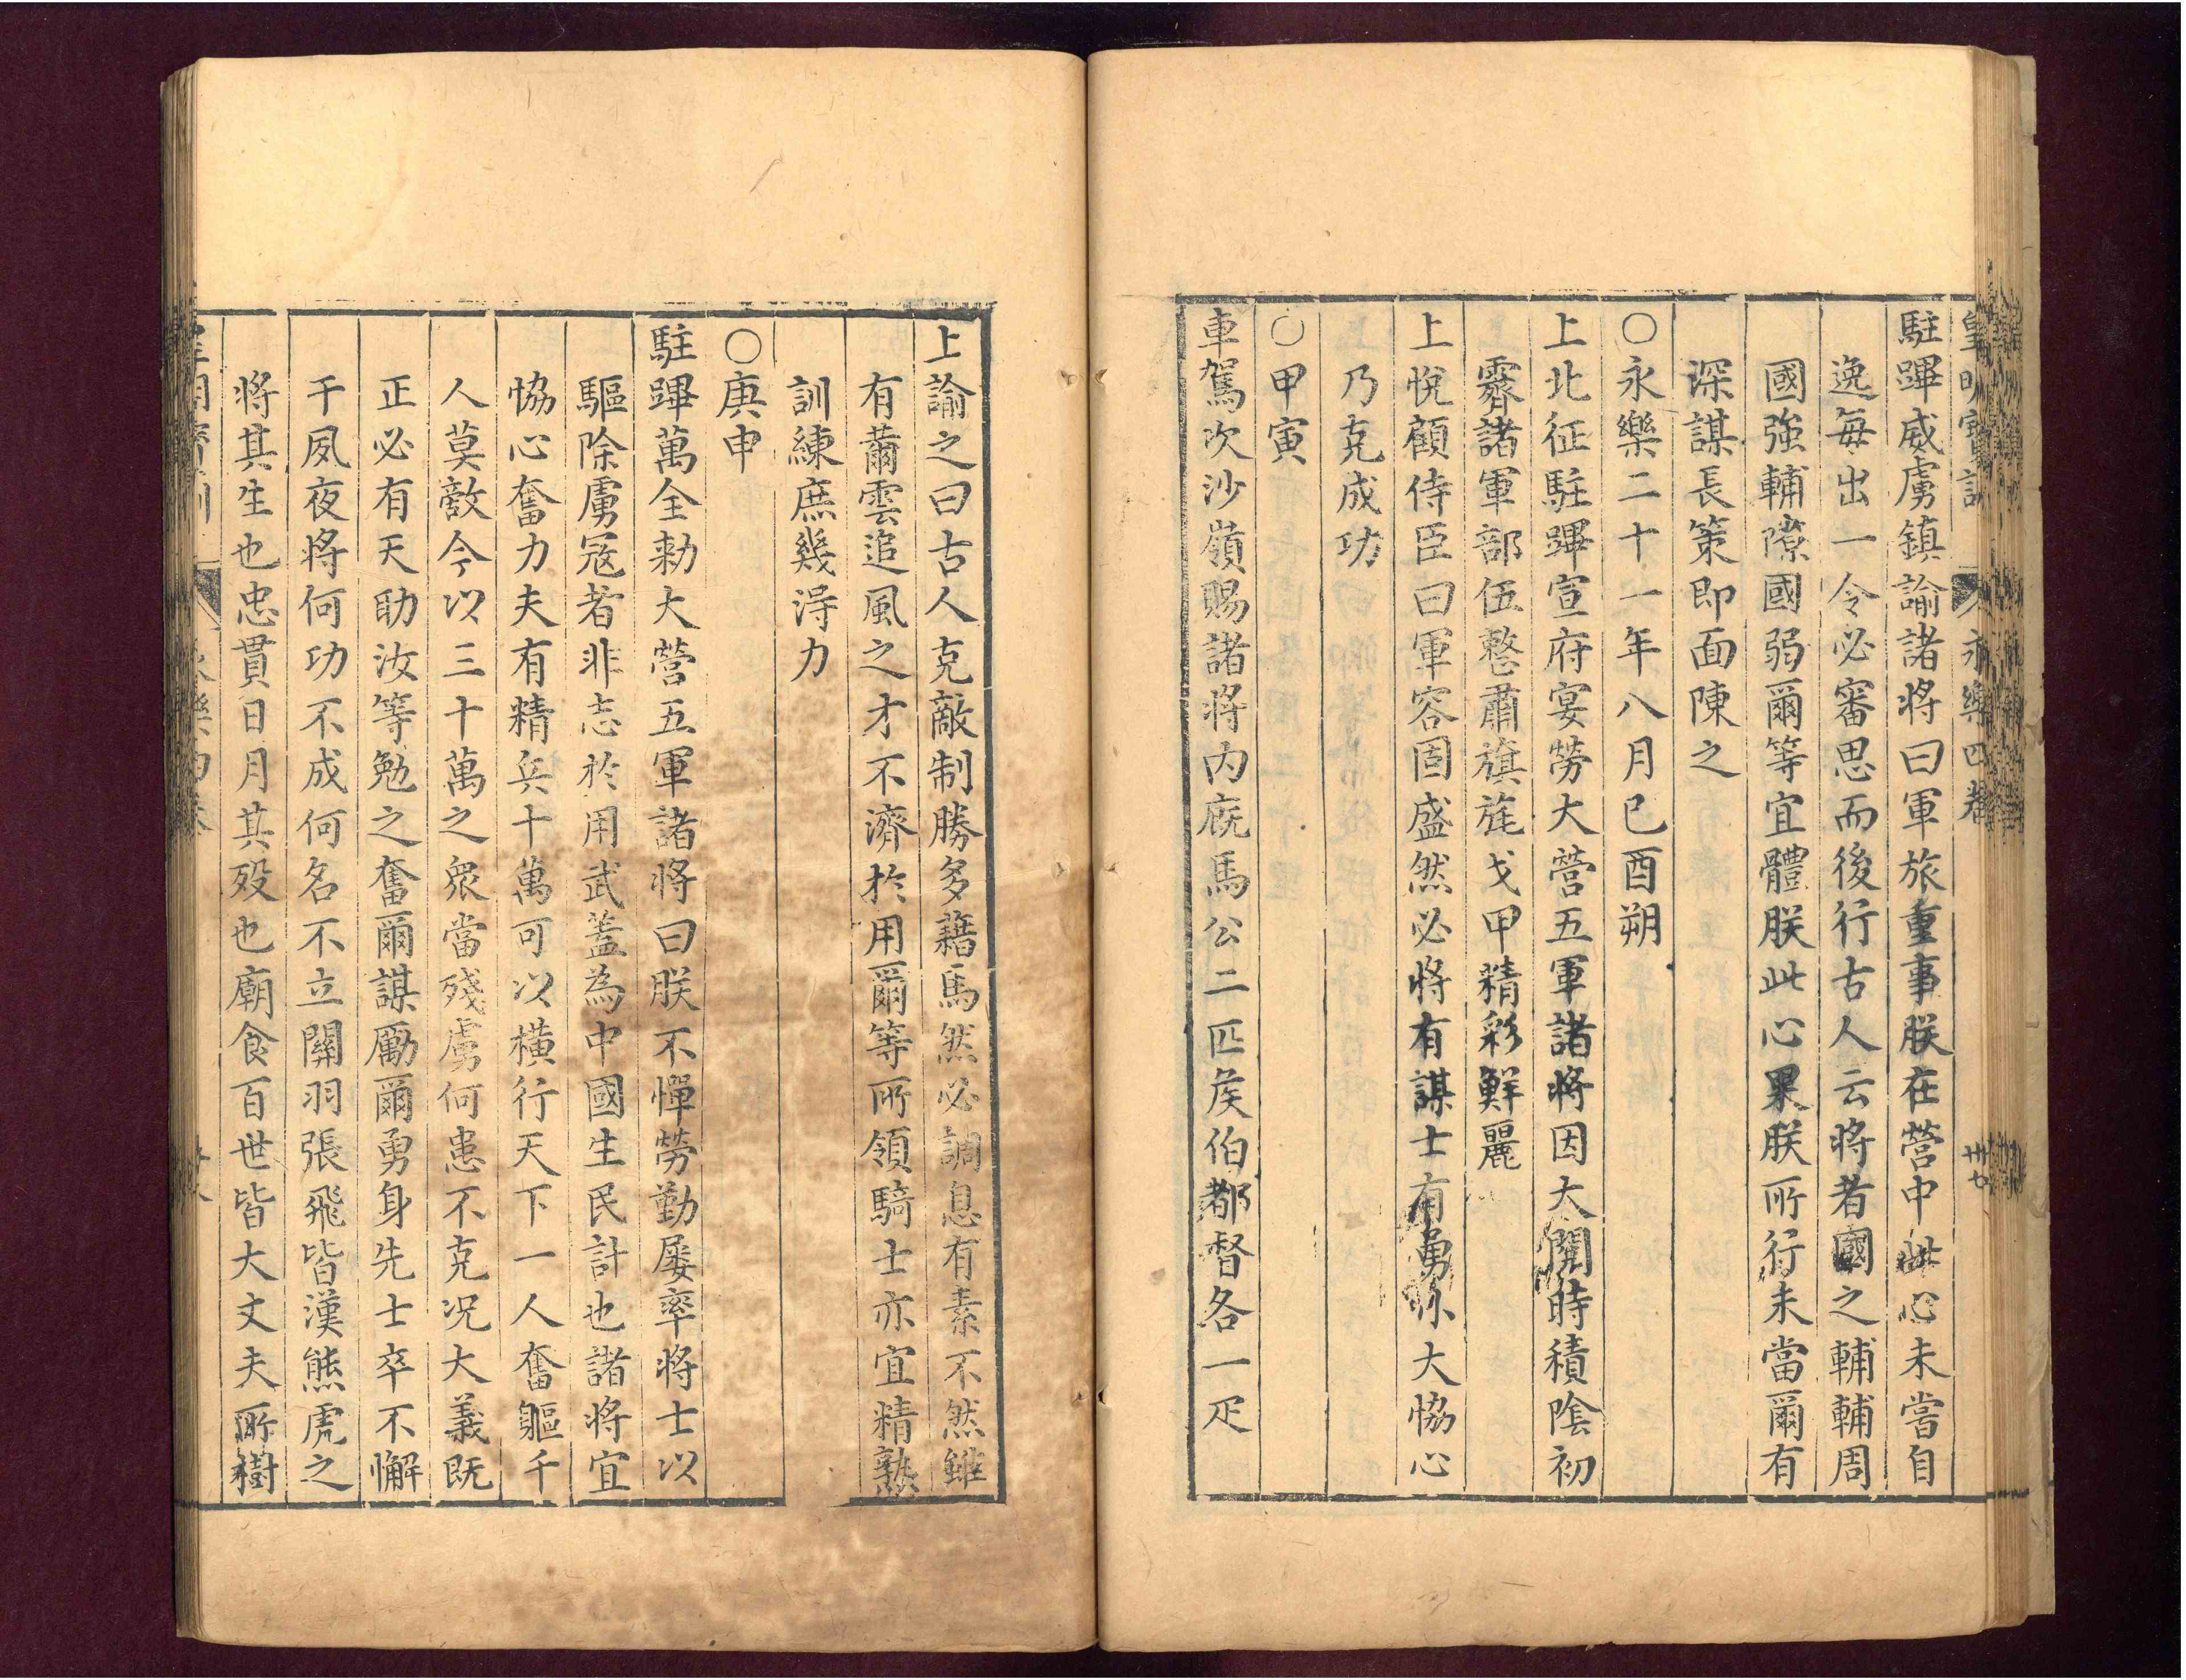 皇明寶訓 永樂四卷 卅七
駐蹕威虜鎮諭諸将曰軍旅重事朕在營中此心未嘗自
逸每出一令必審思而後行古人云将者國之輔輔周
國強輔隙國弱爾等宜體朕此心果朕所行未當爾有
深謀長策即面陳之
○永樂二十一年八月已酉朔
上北征駐蹕宣府宴勞大營五軍諸将因大閱時積陰初
霽諸軍部伍整肅旗旄戈甲精彩鮮麗
上悅顧侍臣曰軍容固盛然必将有謀士有勇亦大恊心
乃克成功
○甲寅
車駕次沙嶺賜諸将内廐馬公二匹矦伯都督各一疋
上諭之曰古人克敵制勝多藉馬然必調息有素不然雖
有躡雲追風之才不濟於用爾等所領騎士亦宜精熟
訓練庶幾得力
○庚申
駐蹕萬全勑大營五軍諸将曰朕不憚勞勤屡率将士以
驅除虜冦者非志於用武蓋為中國生民計也諸将宜
恊心奮力夫有精兵十萬可以横行天下一人奮軀千
人莫敵今以三十萬之衆當殘虜何患不克况大義既
正必有天助汝等勉之奮爾謀勵爾勇身先士卒不懈
于夙夜将何功不成何名不立關羽張飛皆漢熊虎之
将其生也忠貫日月其殁也廟食百世皆大丈夫所樹